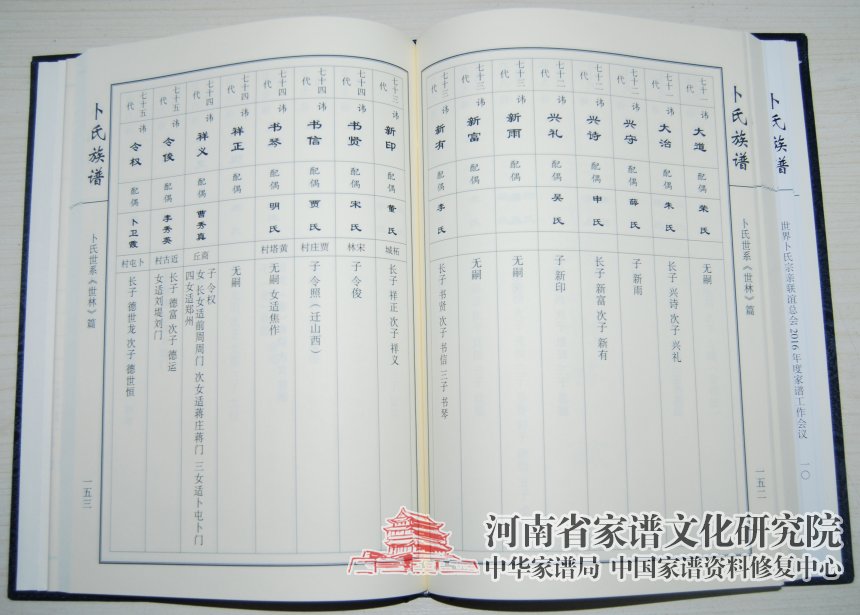 卜氏族普
世界卜氏宗亲联谊总会2016年度家谱工作会议
一〇
卜氏族谱
卜氏世系《世林》篇
一五二
七十一代 讳 大道 配偶 荣氏 无嗣
七十一代 讳 大治 配偶 朱氏 长子 兴诗 次子 兴礼
七十二代 讳 兴守 配偶 薛氏 子 新雨
七十二代 讳 兴诗 配偶 申氏 长子 新富 次子 新有
七十二代 讳 兴礼 配偶 吴氏 子 新印
七十三代 讳 新雨 配偶 无嗣
七十三代 讳 新富 配偶 无嗣
七十三代 讳 新有 配偶 李氏 长子 书贤 次子 书信 三子 书琴
七十三代 讳 新印 配偶 董氏 柘城 长子 祥正 次子 祥义
七十四代 讳 书贤 配偶 宋氏 宋林 子 令俊
七十四代 讳 书信 配偶 贾氏 贾庄村 子 令照（迁山西）
七十四代 讳 书琴 配偶 明氏 黄塔村 无嗣 女适焦作
七十四代 讳 祥正 配偶 无嗣
七十四代 讳 祥义 配偶 曹秀真 商丘 子 令权
女 长女适前周周门 次女适蒋庄蒋门 三女适卜屯卜门
四女适郑州
七十五代 讳 令俊 配偶 李秀英 近古村 长子 德富 次子 德运
女适刘堤刘门
七十五代 讳 令权 配偶 卜卫霞 卜屯村 长子 德世龙 次子 德世恒
卜氏族谱
卜氏世系《世林》篇
一五三
河南省家谱文化研究院
中华家谱局 中国家谱资料修复中心